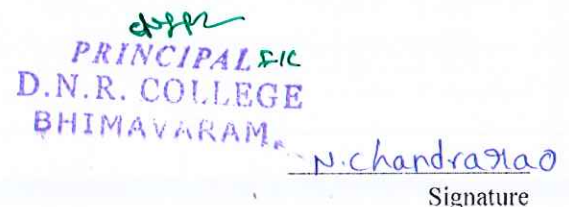 PRINCIPAL F/C
D.N.R. COLLEGE
BHIMAVARAM.
N. chandrarao
Signature